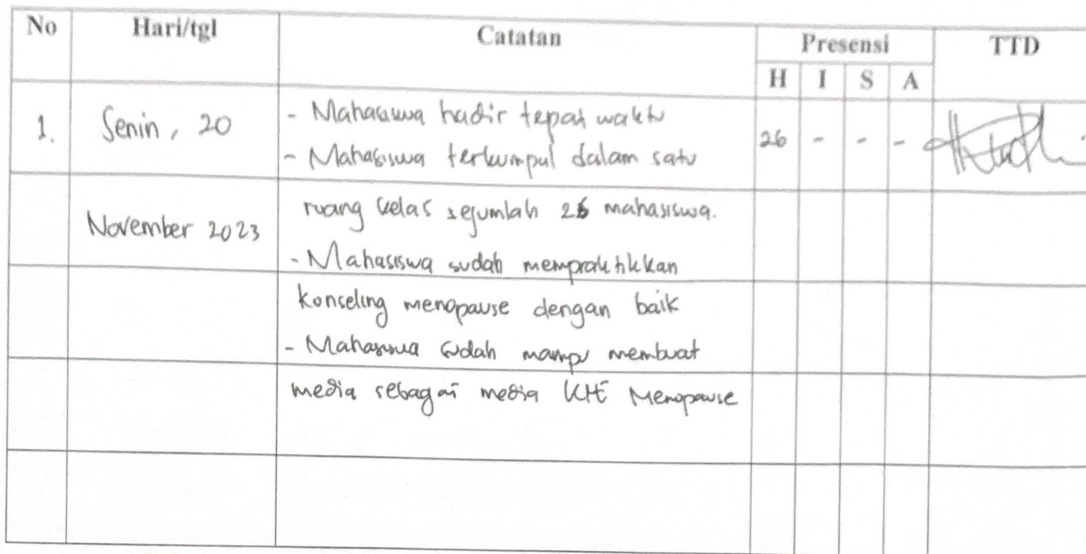 No Hari/tgl Catatan Presensi TTD
H I S A
1. Senin, 20 - Mahasiswa hadir tepat waktu 26 - - -
- Mahasiswa terkumpul dalam satu
November 2023 ruang kelas sejumlah 26 mahasiswa.
- Mahasiswa sudah mempraktikkan
konseling menopause dengan baik
- Mahasiswa sudah mampu membuat
media sebagai media KHE Menopause